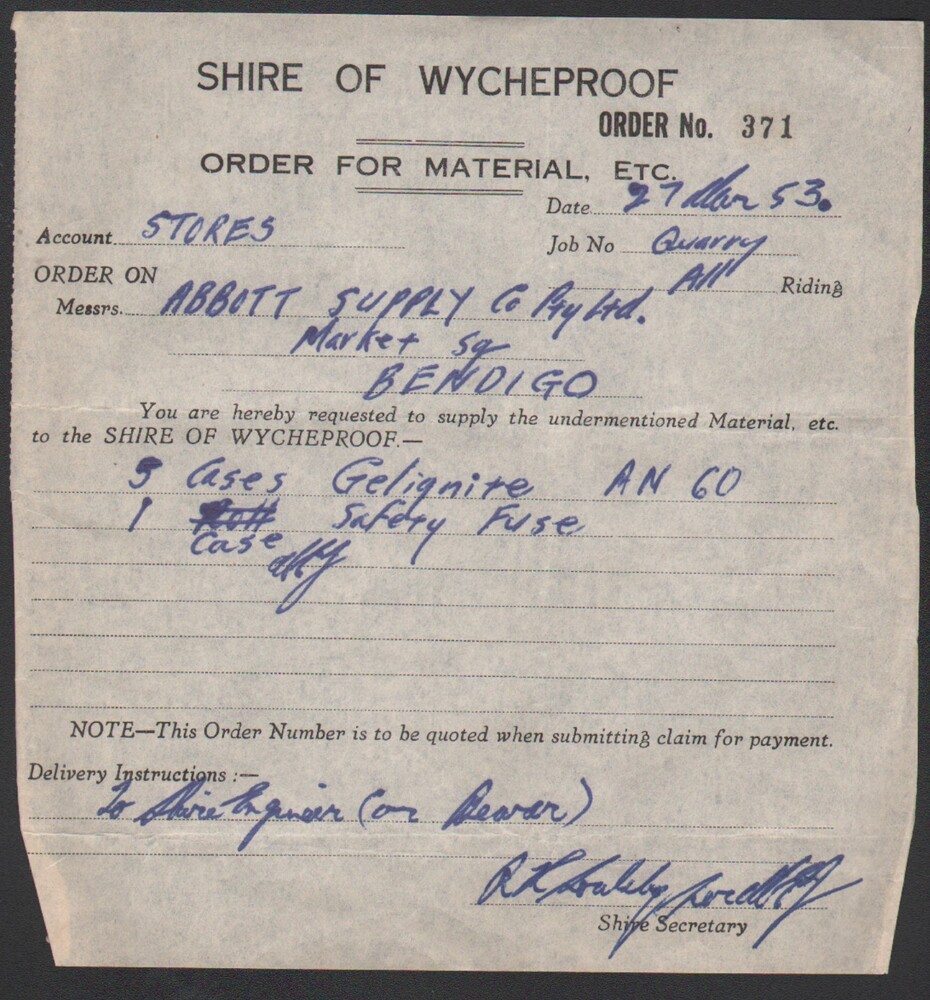 SHIRE OF WYCHEPROOF
ORDER No. 371
ORDER FOR MATERIAL, ETC.
Date 27 Mar 53.
Account STORES
Job No Quarry
ORDER ON
All Riding
Messrs. ABBOTT SUPPLY Co Pty Ltd.
Market Sq
BENDIGO
You are hereby requested to supply the undermentioned Material, etc.
to the SHIRE OF WYCHEPROOF.—
5 Cases Gelignite AN 60
1 Safety Fuse
Case
NOTE—This Order Number is to be quoted when submitting claim for payment.
Delivery Instructions :—
To Shire Engineer (or Bearer)
Shire Secretary